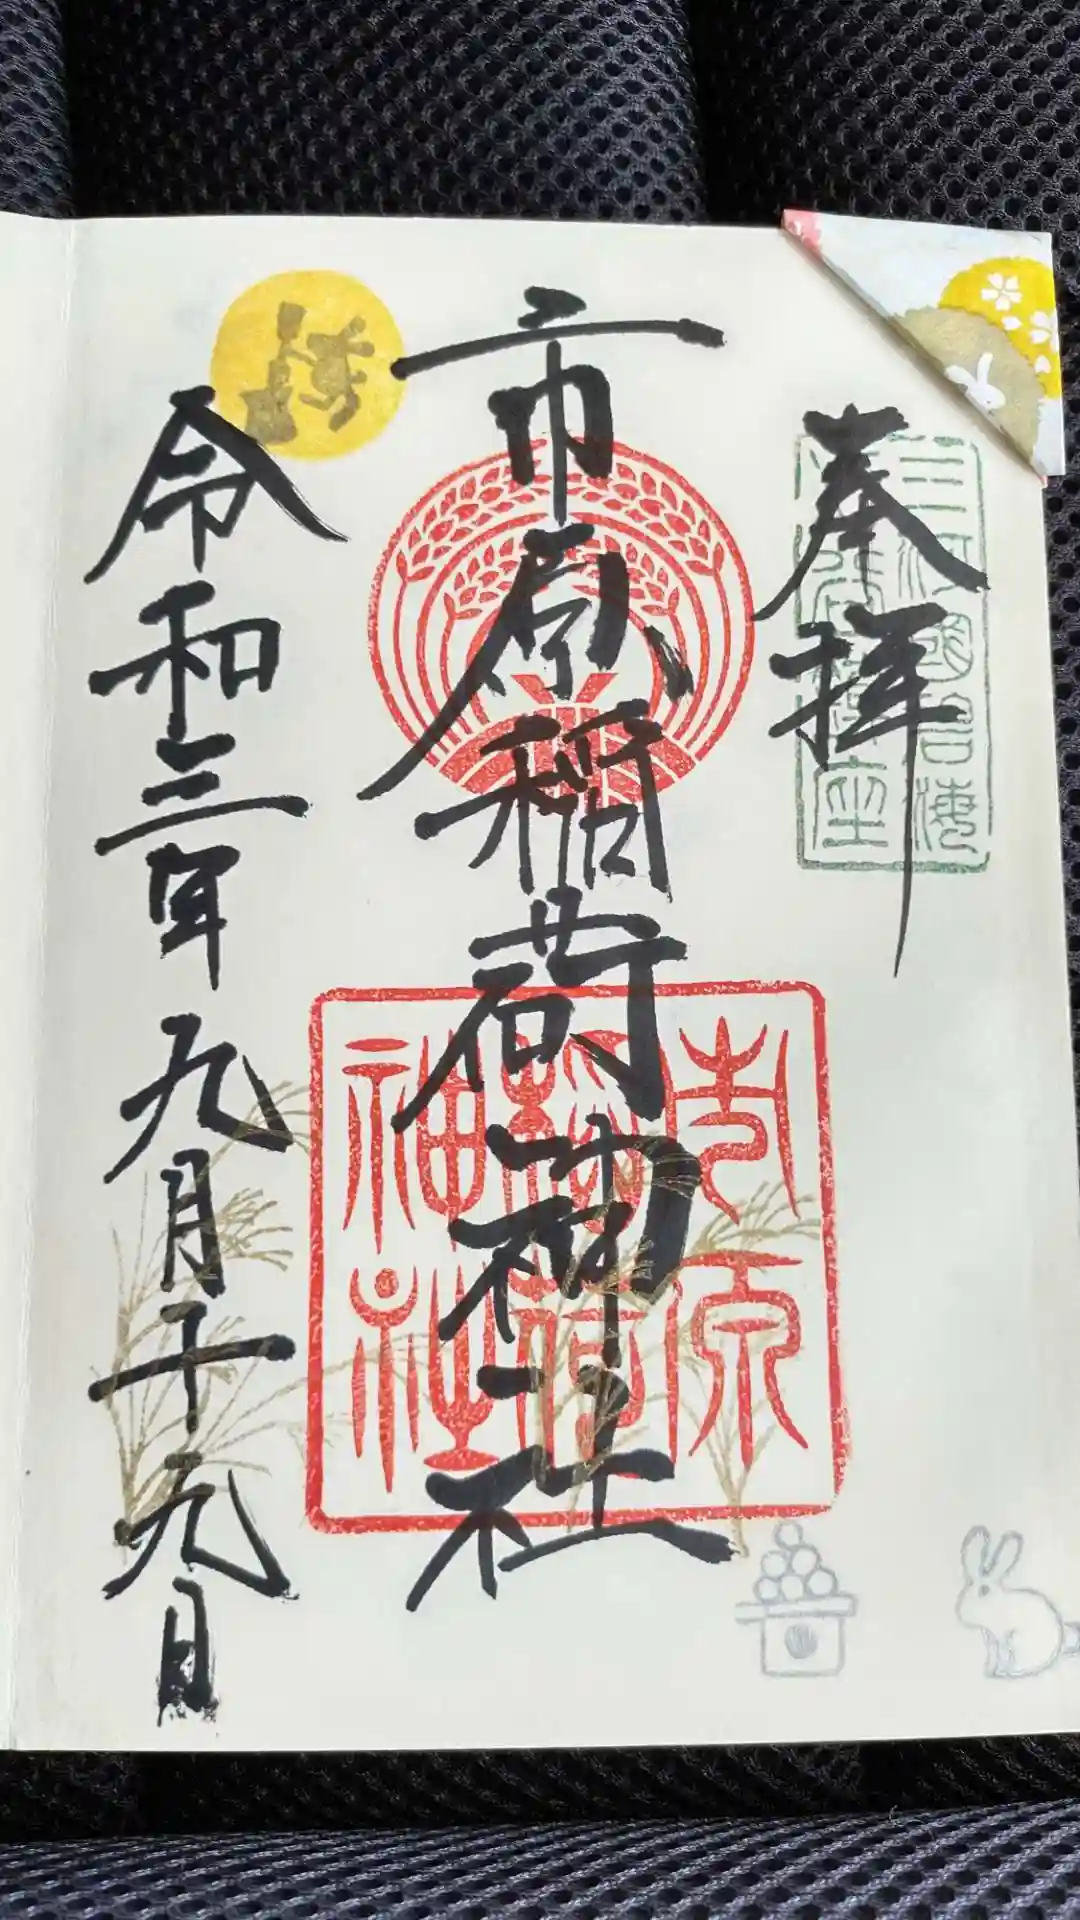 奉拝
市原稲荷神社
令和三年九月十九日
市原
稲荷
神社